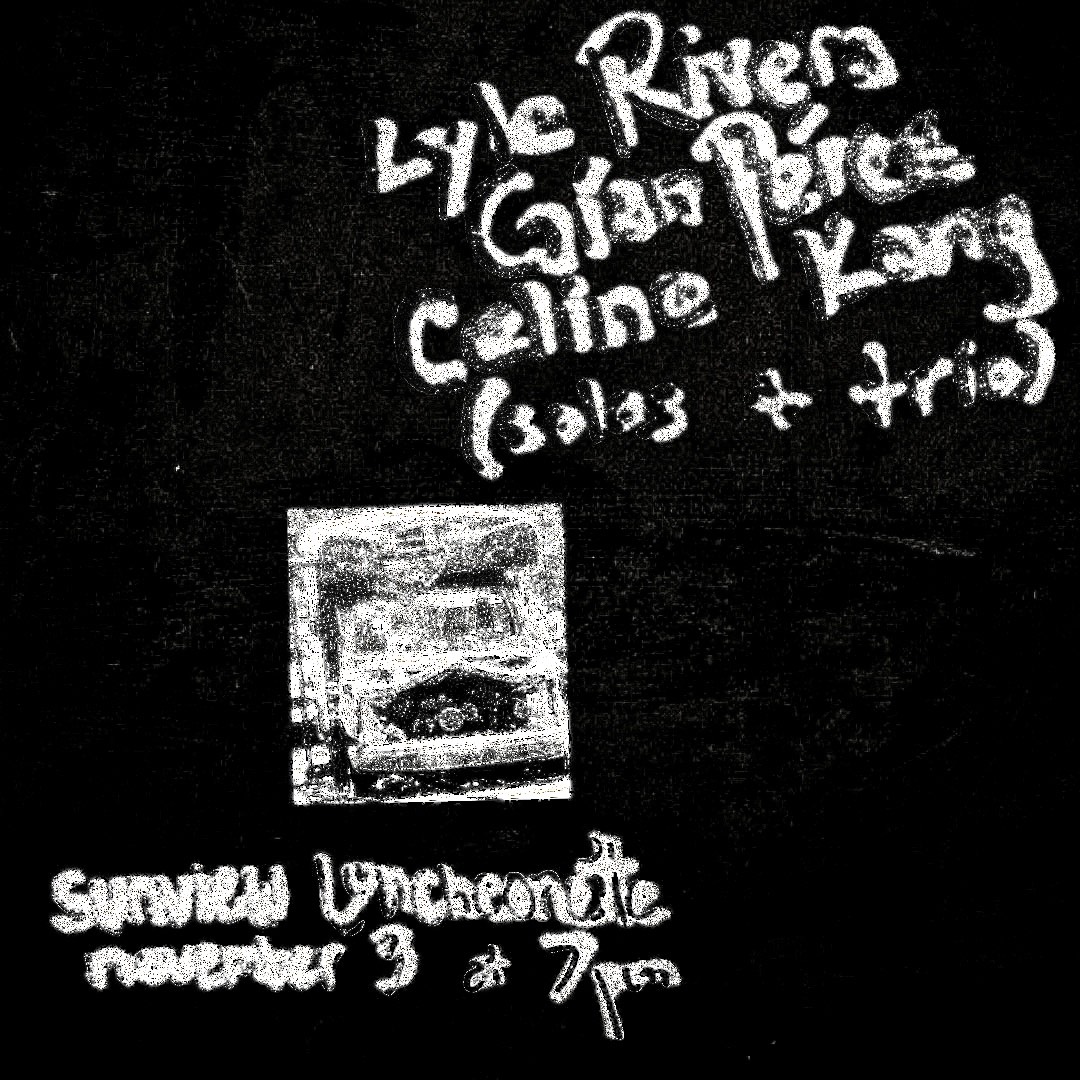 Lyle Rivera
Gían Pérez
Celine Kang
(solos + trio)
Sunview Luncheonette
november 3 at 7pm